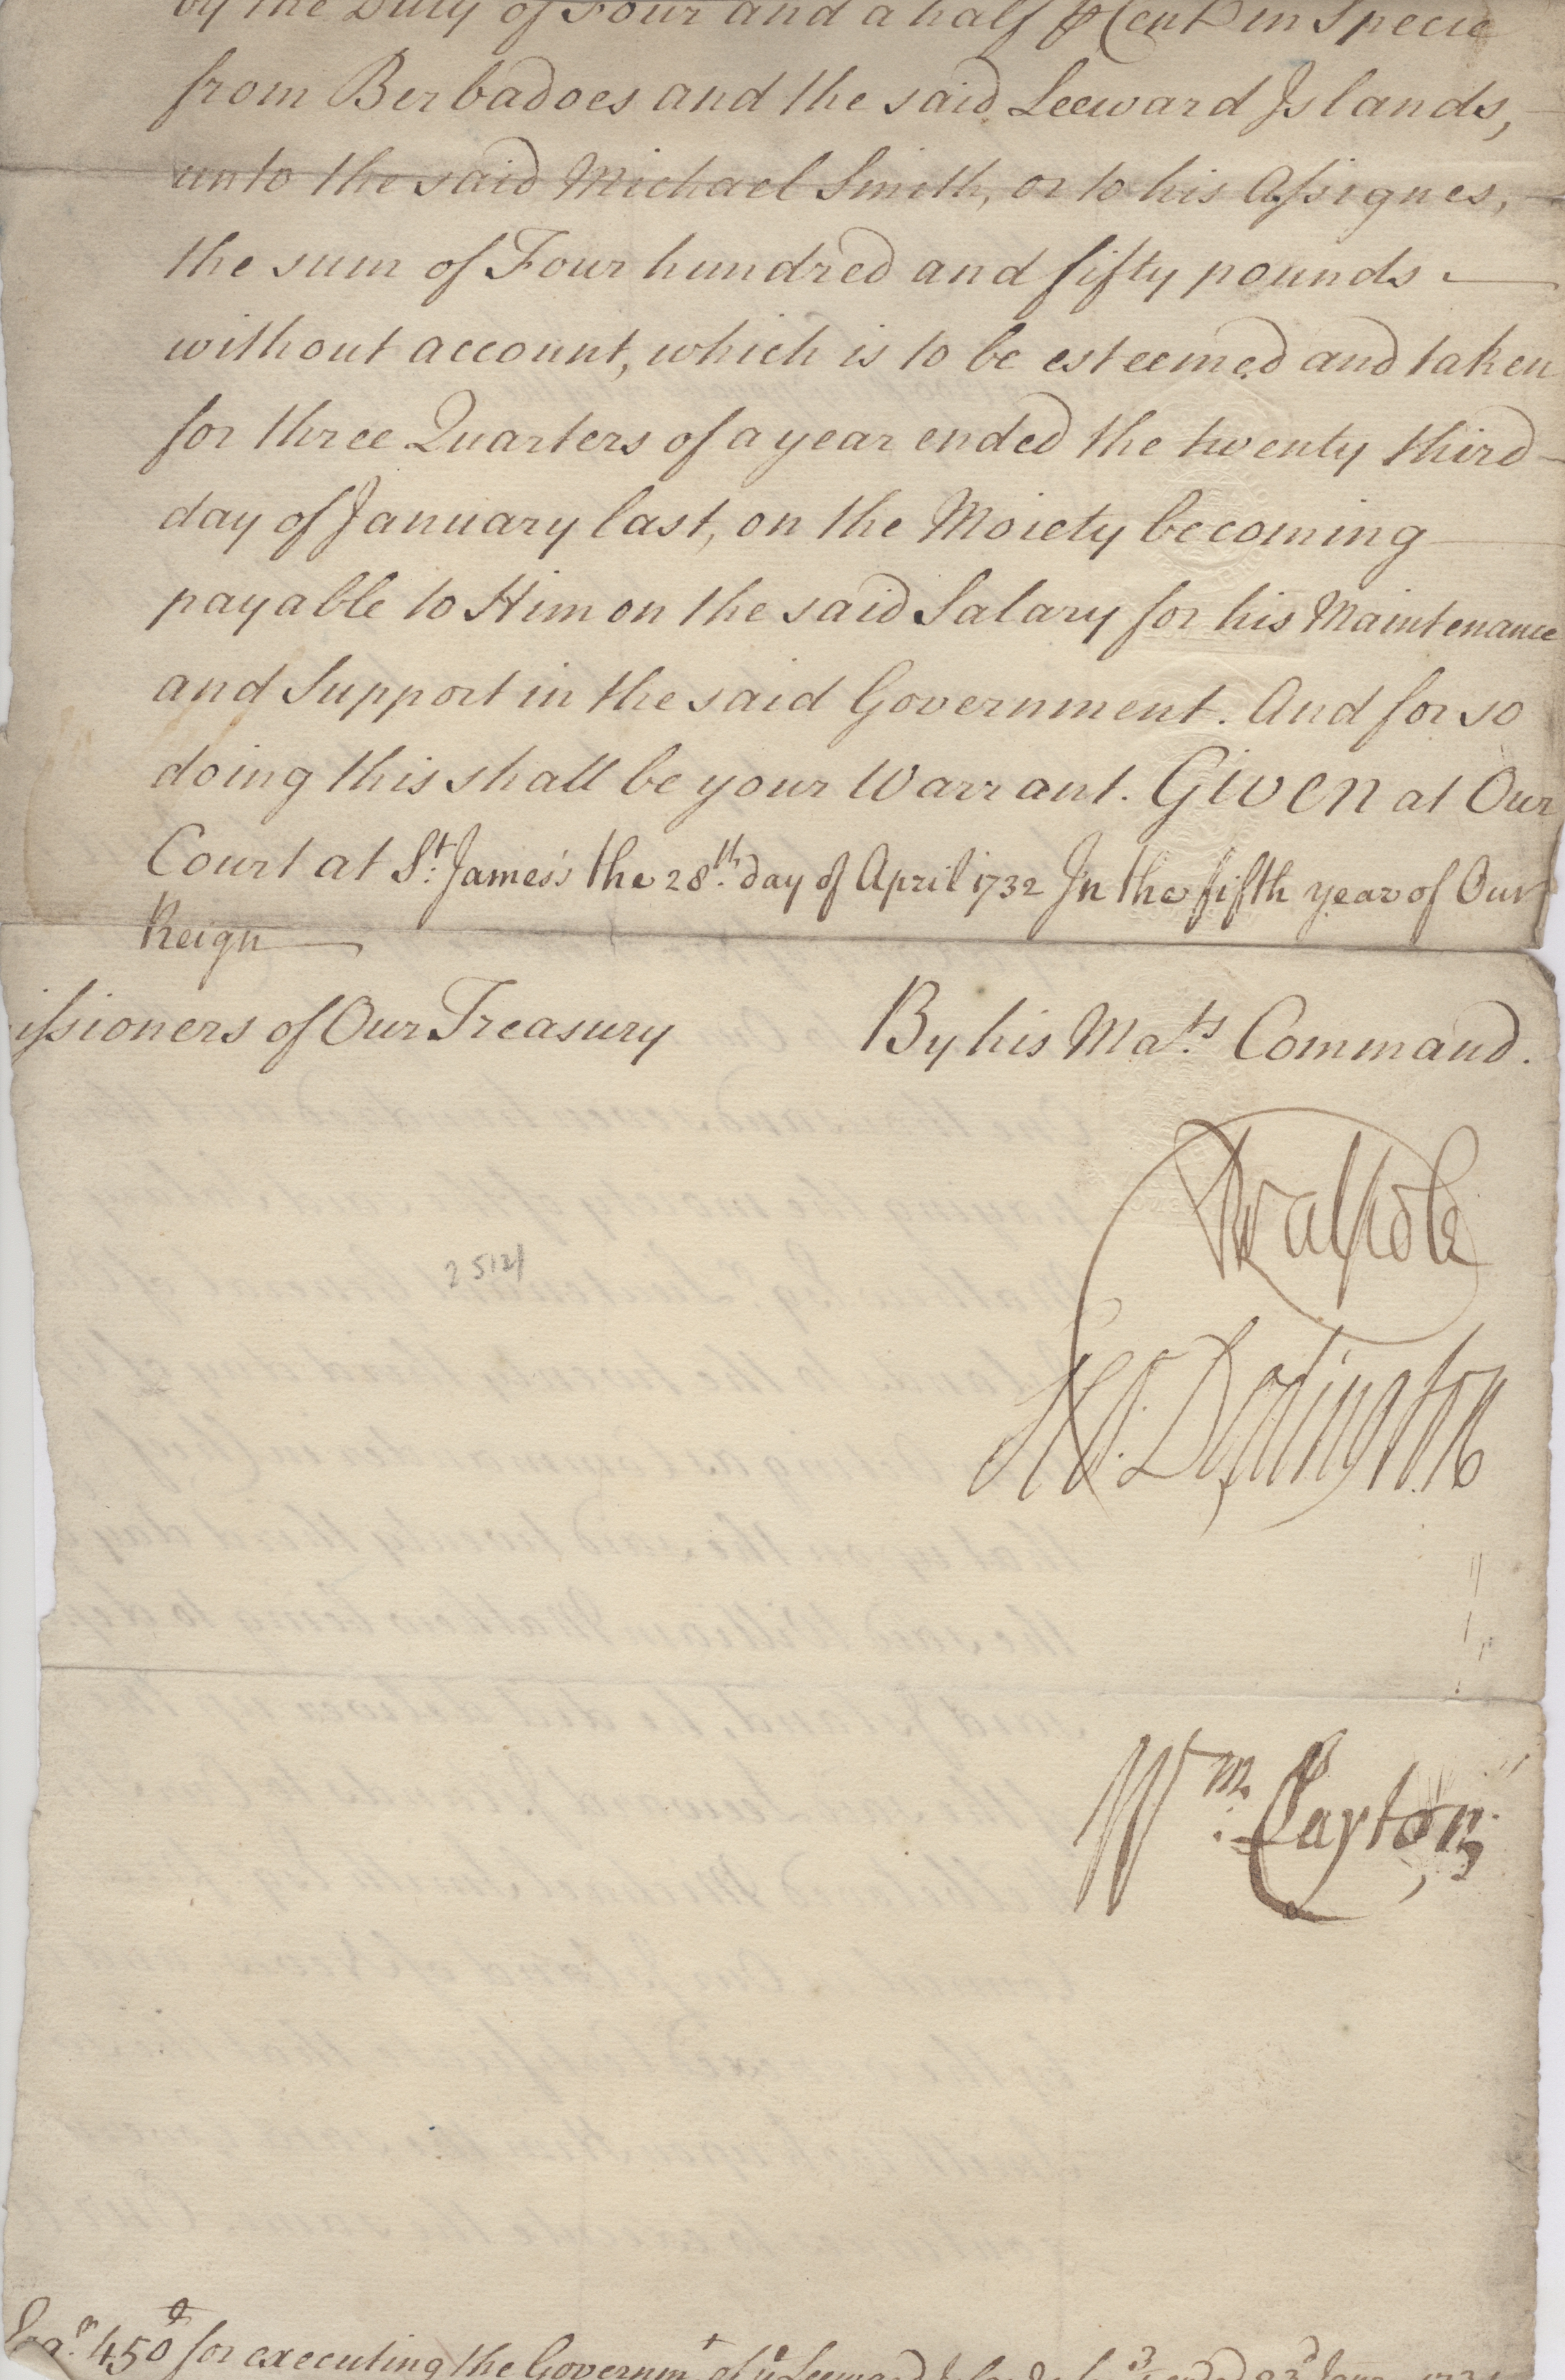 by the Duty of Four and a half ℔ Cent in Specie
from Berbadoes and the said Leeward Islands,
unto the said Michael Smith, or to his Assignes,
the sum of Four hundred and fifty pounds
without account, which is to be esteemed and taken
for three Quarters of a year ended the twenty third
day of January last, on the Moiety becoming
payable to Him on the said Salary for his Maintenance
and Support in the said Government. And for so
doing this shall be your Warrant. Given at Our
Court at St: James's the 28th. day of April 1732 In the fifth year of Our
Reign
issioners of Our Treasury
By his Mats. Command.
RWalpole
Dodington
2512/
Wm: Clayton
Esqr. 450£ for executing the Governmt of ye Leeward